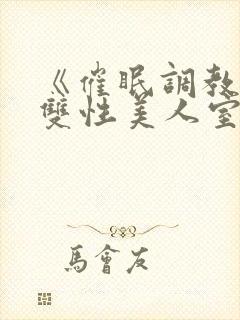 《催眠調教
雙性美人室
馬會友